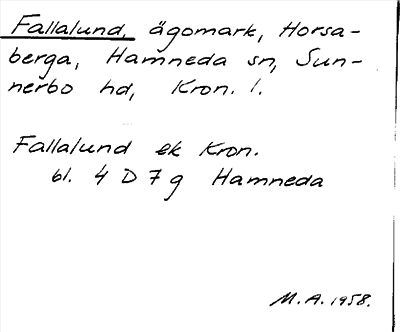 Fallalund, ägomark, Horsa-
berga, Hamneda sn, Sun-
nerbo hd, Kron. l.
Fallalund ek Kron.
bl. 4 D 7 g Hamneda
M.A. 1958.